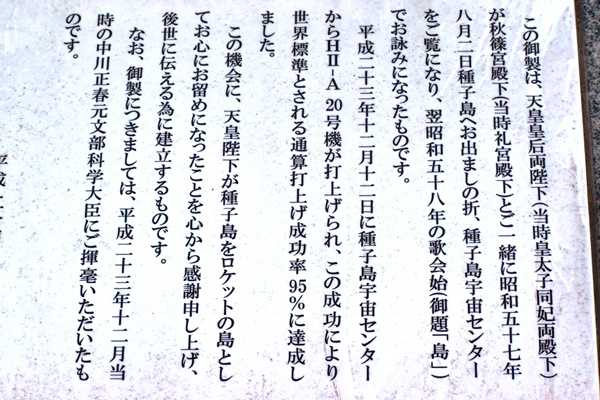 この御製は、天皇皇后両陛下(当時皇太子同妃両殿下)
が秋篠宮殿下(当時礼宮殿下)とご一緒に昭和五十七年
八月二日種子島へお出ましの折、種子島宇宙センター
をご覧になり、翌昭和五十八年の歌会始(御題「島」)
でお詠みになったものです。
平成二十三年十二月十二日に種子島宇宙センター
からHⅡ-A 20号機が打上げられ、この成功により
世界標準とされる通算打上げ成功率95%に達成し
ました。
この機会に、天皇陛下が種子島をロケットの島とし
てお心にお留めになったことを心から感謝申し上げ、
後世に伝える為に建立するものです。
なお、御製につきましては、平成二十三年十二月当
時の中川正春元文部科学大臣にご揮毫いただいたも
のです。
平成二